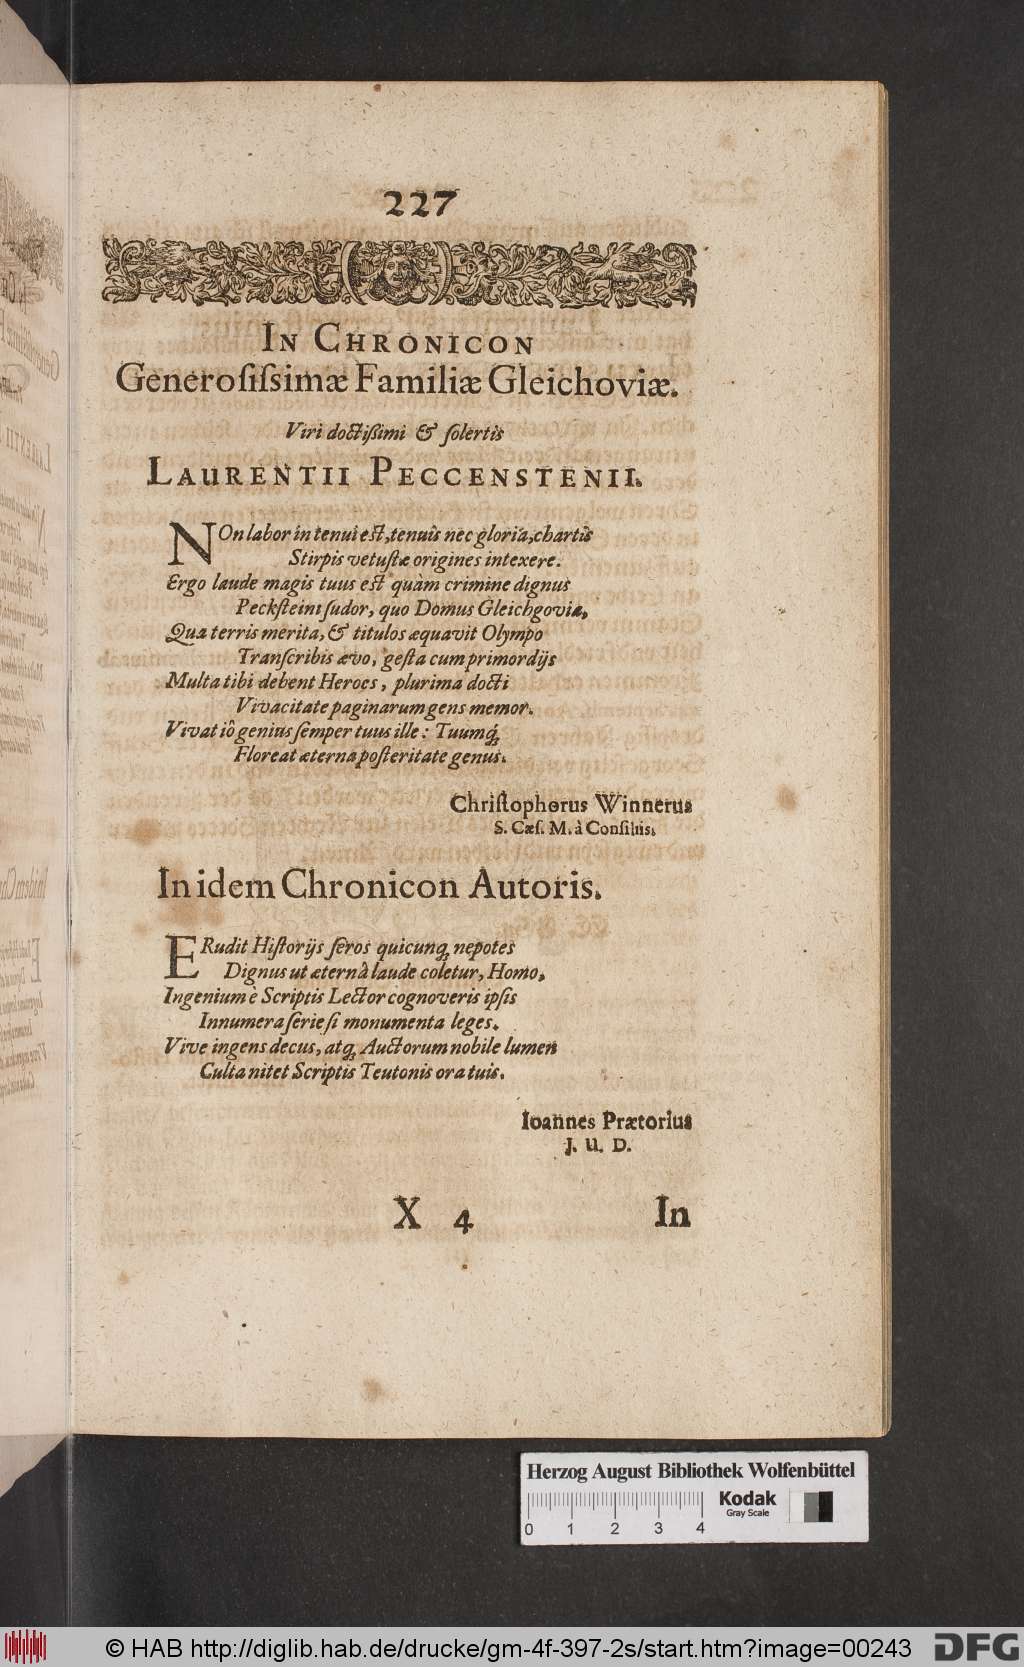 227
IN CHRONICON
Generosiſsimæ Familiæ Gleichoviæ.
Viri doctißimi & ſolertis
LAURENTII PECCENSTENII.
NOn labor in tenui est, tenuis nec gloria, chartis
Stirpis vetuſtæ origines intexere.
Ergo laude magis tuus est quàm crimine dignus
Peckſteini ſudor, quo Domus Gleichgoviæ,
Quæ terris merita, & titulos æquavit Olympo
Tranſcribis ævo, geſta cum primordijs
Multa tibi debent Heroes, plurima docti
Vivacitate paginarum gens memor.
Vivat iô genius ſemper tuus ille: Tuumq́;
Floreat æterna poſteritate genus.
Chriſtophorus Winnerus
S. Cæſ. M. à Conſiliis.
In idem Chronicon Autoris.
ERudit Hiſtorijs ſeros quicunq; nepotes
Dignus ut æternâ laude coletur, Homo,
Ingenium è Scriptis Lector cognoveris ipſis
Innumera ſerie ſi monumenta leges.
Vive ingens decus, atq; Auctorum nobile lumen
Culta nitet Scriptis Teutonis ora tuis.
Ioannes Prætorius
J. U. D.
X 4 In
Herzog August Bibliothek Wolfenbüttel
0 1 2 3 4
Kodak
Gray Scale
© HAB http://diglib.hab.de/drucke/gm-4f-397-2s/start.htm?image=00243
DFG